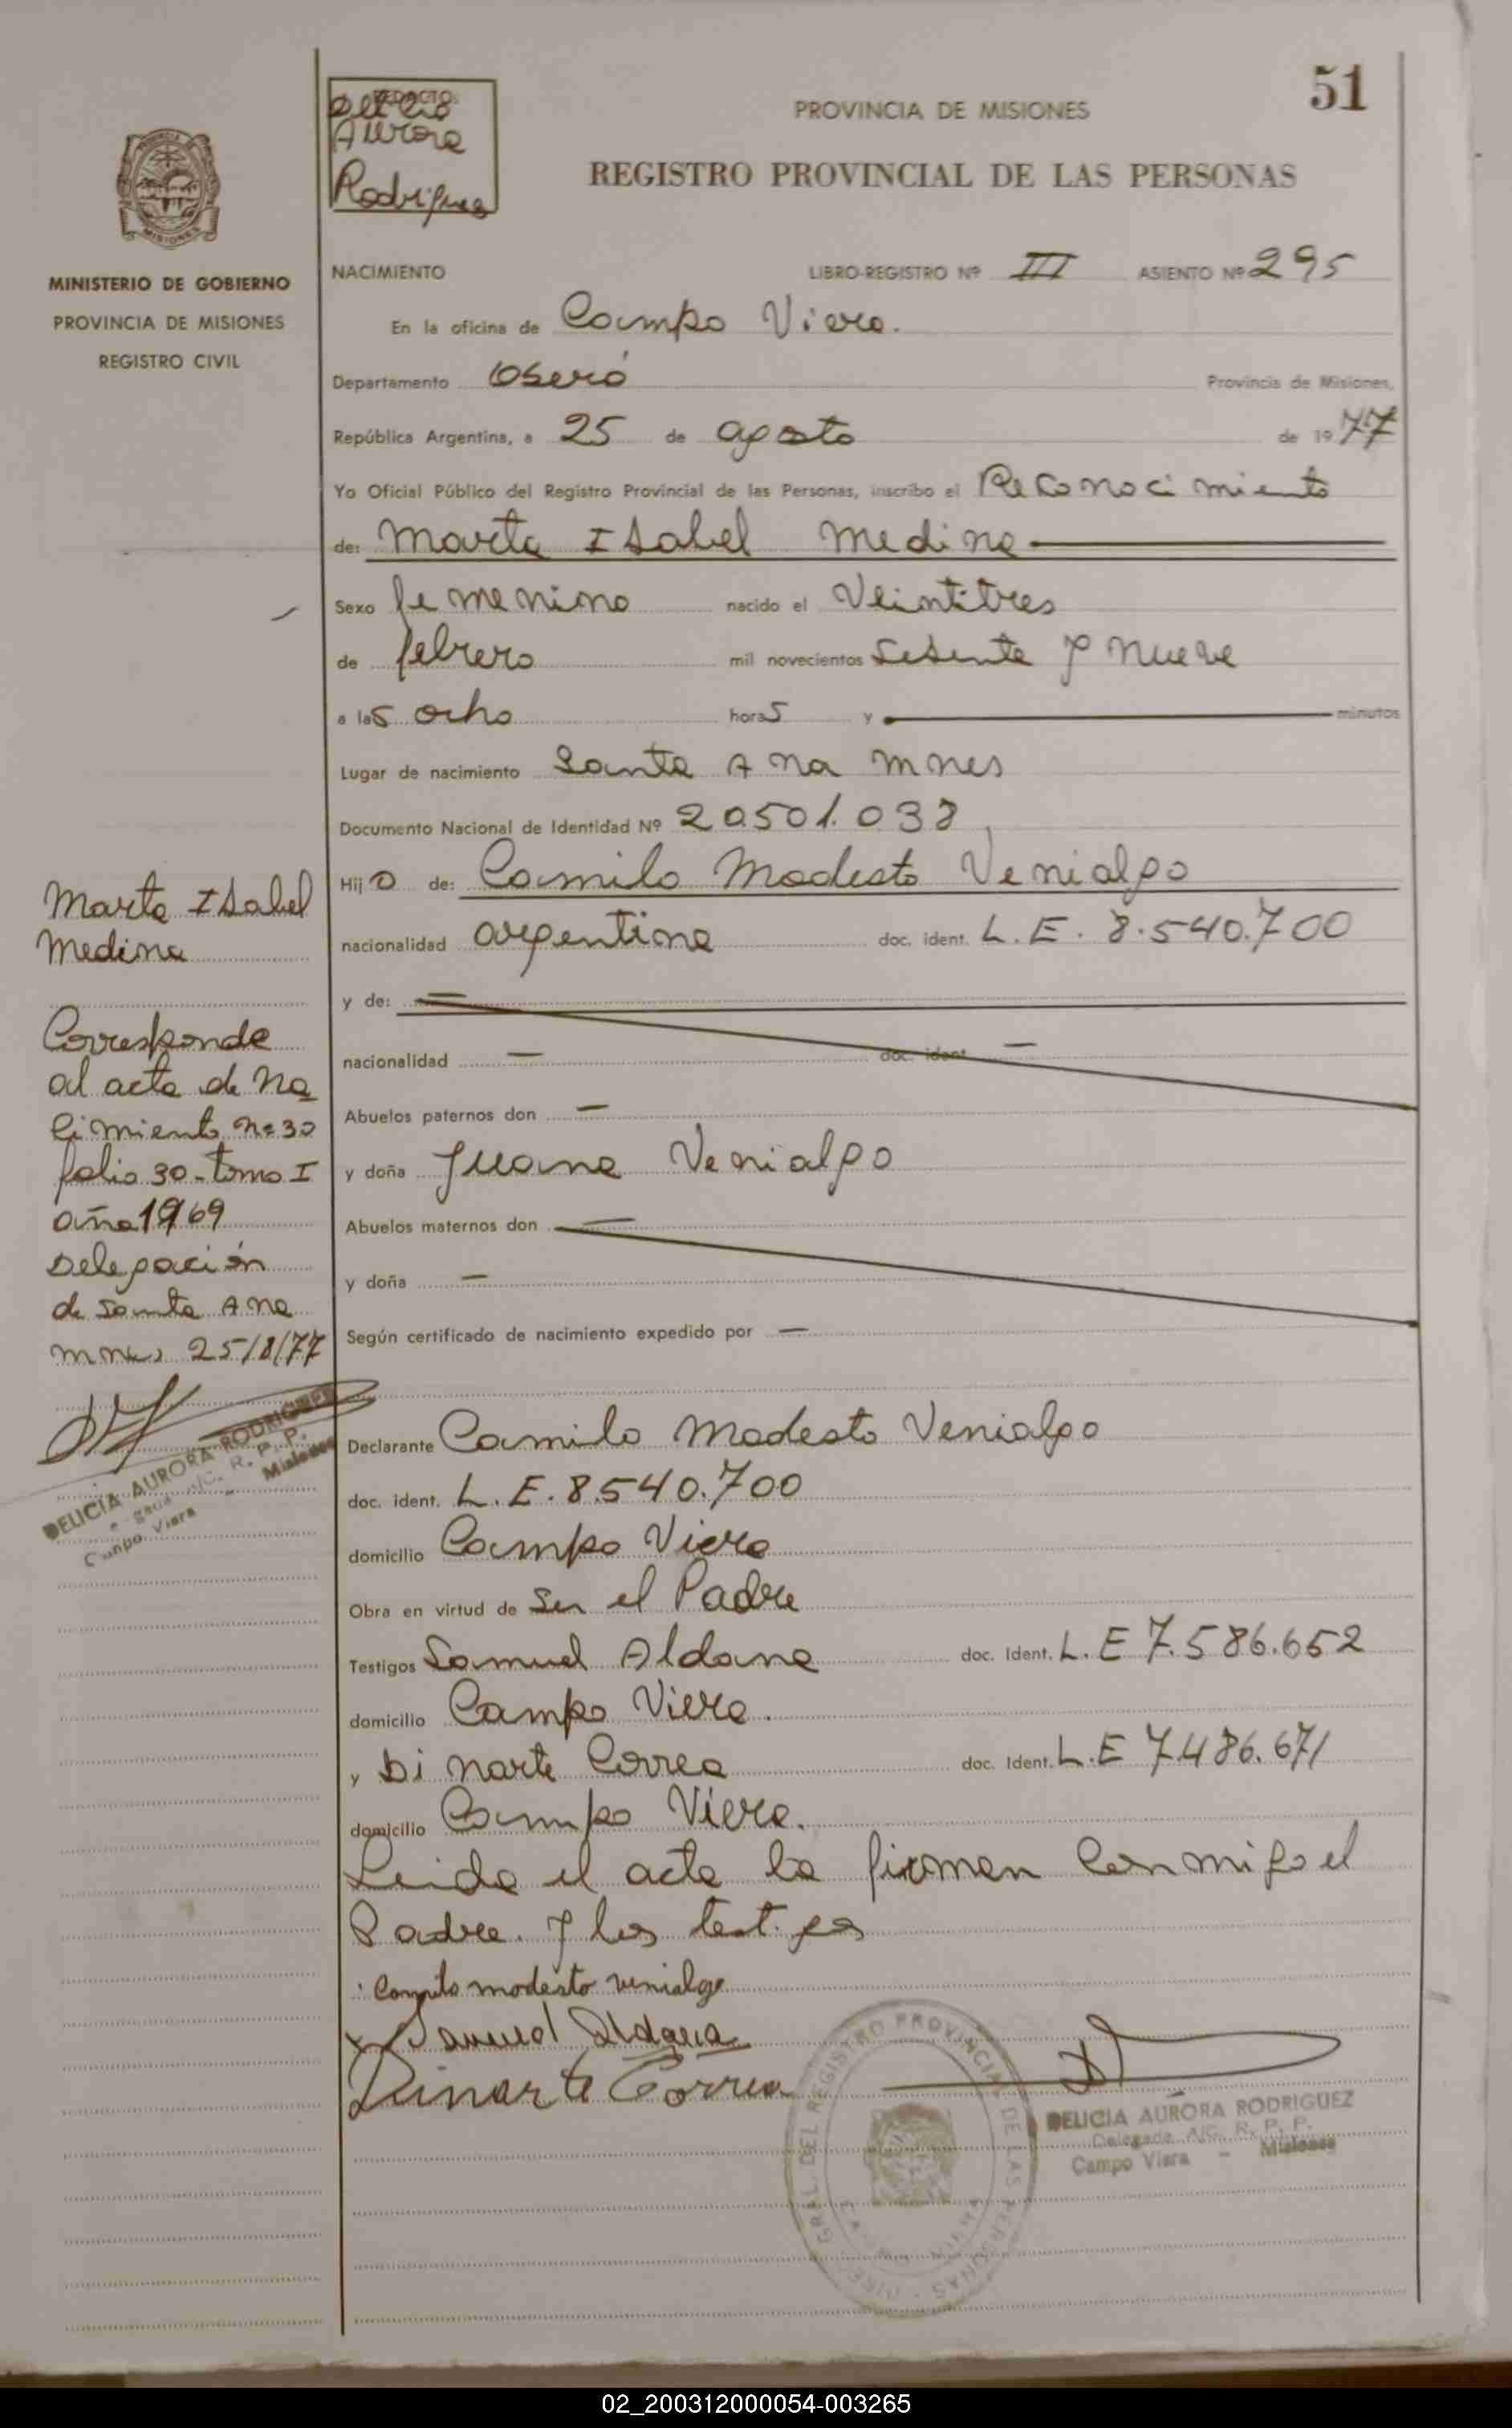 51
PROVINCIA DE MISIONES
REGISTRO PROVINCIAL DE LAS PERSONAS
REDACTO:
Delicia
Aurora
Rodriguez
MINISTERIO DE GOBIERNO
PROVINCIA DE MISIONES
REGISTRO CIVIL
NACIMIENTO LIBRO-REGISTRO Nº III ASIENTO Nº 295
En la oficina de Campo Viera.
Departamento Oberá Provincia de Misiones,
República Argentina, a 25 de agosto de 1977
Yo Oficial Público del Registro Provincial de las Personas, inscribo el Reconocimiento
de: Marta Isabel Medina
Sexo femenino nacido el Veintitres
de febrero mil novecientos sesenta y nueve
a las ocho horas y — minutos
Lugar de nacimiento Santa Ana Mnes
Documento Nacional de Identidad Nº 20.501.038
Hijo de: Camilo Modesto Venialgo
nacionalidad argentina doc. ident. L.E. 8.540.700
y de: —
nacionalidad — doc. ident. —
Abuelos paternos don —
y doña Juana Venialgo
Abuelos maternos don —
y doña —
Según certificado de nacimiento expedido por —
Declarante Camilo Modesto Venialgo
doc. ident. L.E. 8.540.700
domicilio Campo Viera
Obra en virtud de ser el Padre
Testigos Samuel Aldana doc. Ident. L.E 7.586.652
domicilio Campo Viera.
y Dinarte Correa doc. Ident. L.E 7.486.671
domicilio Campo Viera.
Leida el acta la firman conmigo el
Padre. y los testigos
Camilo modesto venialgo
Samuel Aldana
Dinarte Correa
DELICIA AURORA RODRIGUEZ
Delegada A/C. R. P. P.
Campo Viera - Misiones
DIREC. GRAL. DEL REGISTRO PROVINCIAL DE LAS PERSONAS
Marta Isabel
Medina
Corresponde
al acta de Na
cimiento nº 30
folio 30 - tomo I
año 1969
Delegación
de Santa Ana
Mnes 25/8/77
DELICIA AURORA RODRIGUEZ
A/C. R. P. P.
Campo Viera - Misiones
02_200312000054-003265